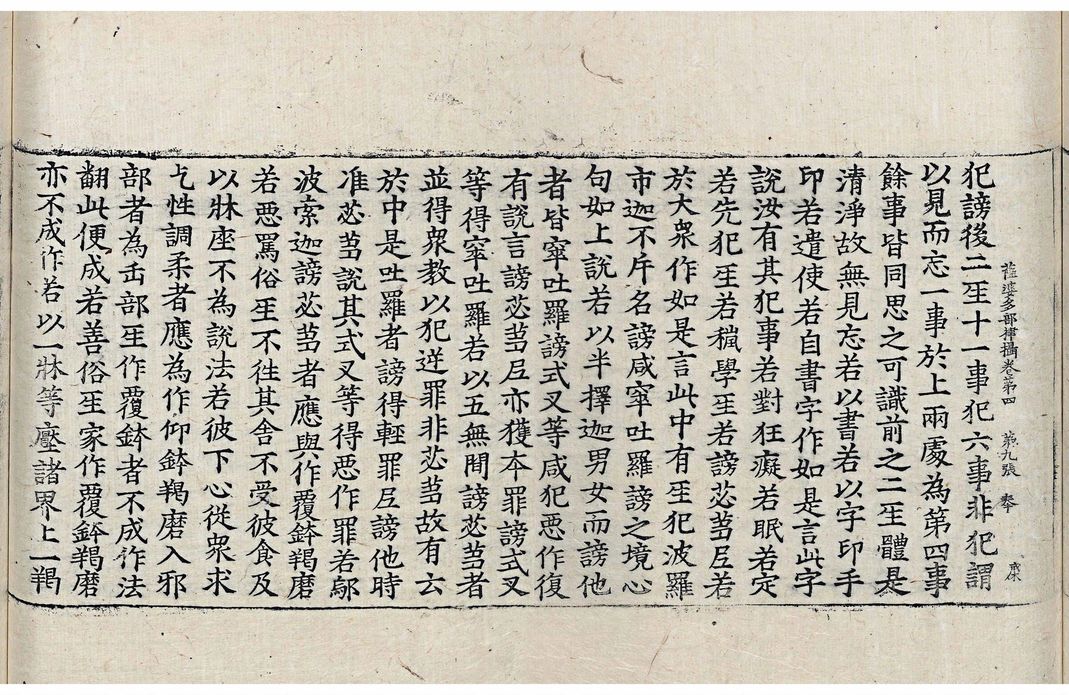 薩婆多部律攝卷第四　第九張　奉
犯謗後二𤯔十一事犯六事非犯謂
以見而忘一事於上兩處為第四事
餘事皆同思之可識前之二𤯔體是
清淨故無見忘若以書若以字印手
印若遣使若自書字作如是言此字
說汝有其犯事若對狂癡若眠若定
若先犯𤯔若穢學𤯔若謗苾芻尼若
於大衆作如是言此中有𤯔犯波羅
市迦不斥名謗咸窣吐羅謗之境心
句如上說若以半擇迦男女而謗他
者皆窣吐羅謗式叉等咸犯惡作復
有說言謗苾芻尼亦獲本罪謗式叉
等得窣吐羅若以五無間謗苾芻者
並得衆教以犯逆罪非苾芻故有云
於中是吐羅者謗得輕罪尼謗他時
准苾芻說其式叉等得惡作罪若鄔
波索迦謗苾芻者應與作覆鉢羯磨
若惡罵俗𤯔不往其舍不受彼食及
以牀座不為說法若彼下心從衆求
乞性調柔者應為作仰鉢羯磨入邪
部者為缶部𤯔作覆鉢者不成作法
翻此便成若善俗𤯔家作覆鉢羯磨
亦不成作若以一牀等壓諸界上一羯